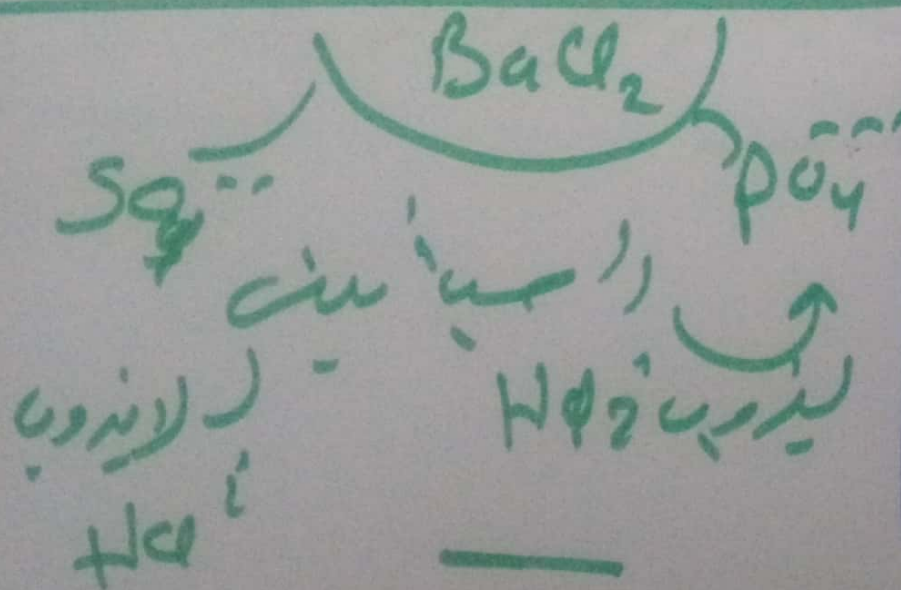 BaCl₂
SO₄-- PO₄---
راسب أبيض
يذوب في HCl
لا يذوب في
HCl